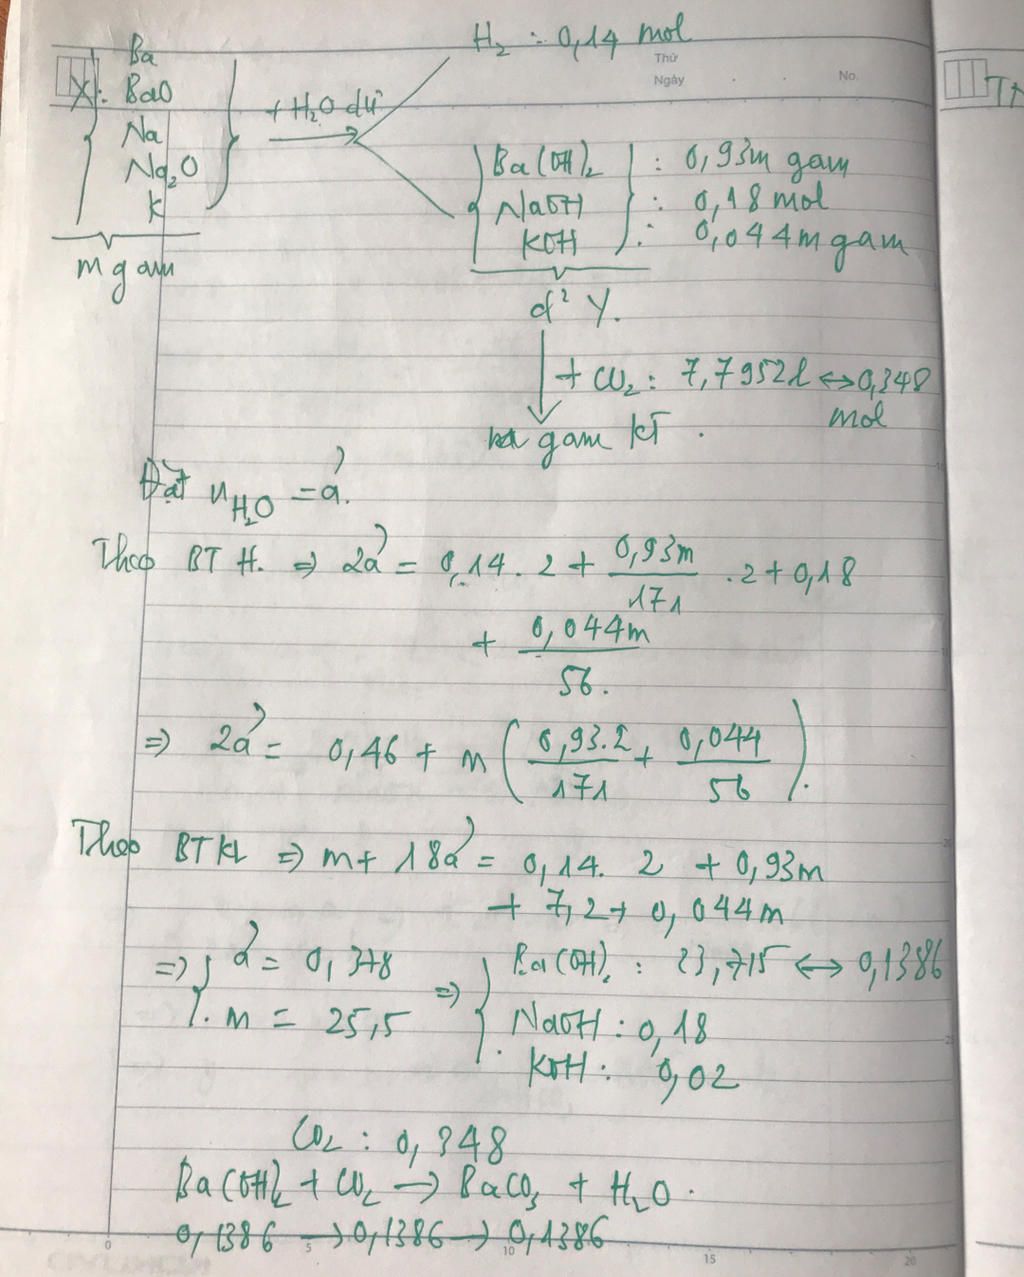 H₂ : 0,14 mol
Thứ
Ngày . . No.
X: Ba
BaO
Na
Na₂O
K
m gam
+ H₂O dư →
Ba(OH)₂ : 0,93m gam
NaOH : 0,18 mol
KOH : 0,044m gam
d² Y.
+ CO₂ : 7,7952l ↔ 0,348
mol
gam KT .
Đặt n H₂O = a.
Theo BT H. ⇒ 2a = 0,14 . 2 + 0,93m/171 . 2 + 0,18
+ 0,044m/56.
⇒ 2a = 0,46 + m (0,93.2/171 + 0,044/56).
Theo BTKL ⇒ m + 18a = 0,14. 2 + 0,93m
+ 7,2 + 0,044m
⇒ { a = 0,378
m = 25,5
⇒ { Ba(OH)₂ : 23,715 ↔ 0,1386
NaOH : 0,18
KOH : 0,02
CO₂ : 0,348
Ba(OH)₂ + CO₂ → BaCO₃ + H₂O.
0,1386 → 0,1386 → 0,1386
0 5 10 15 20